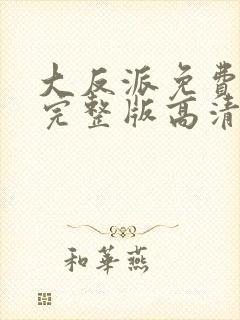 大反派免費
完整版高清
和華燕